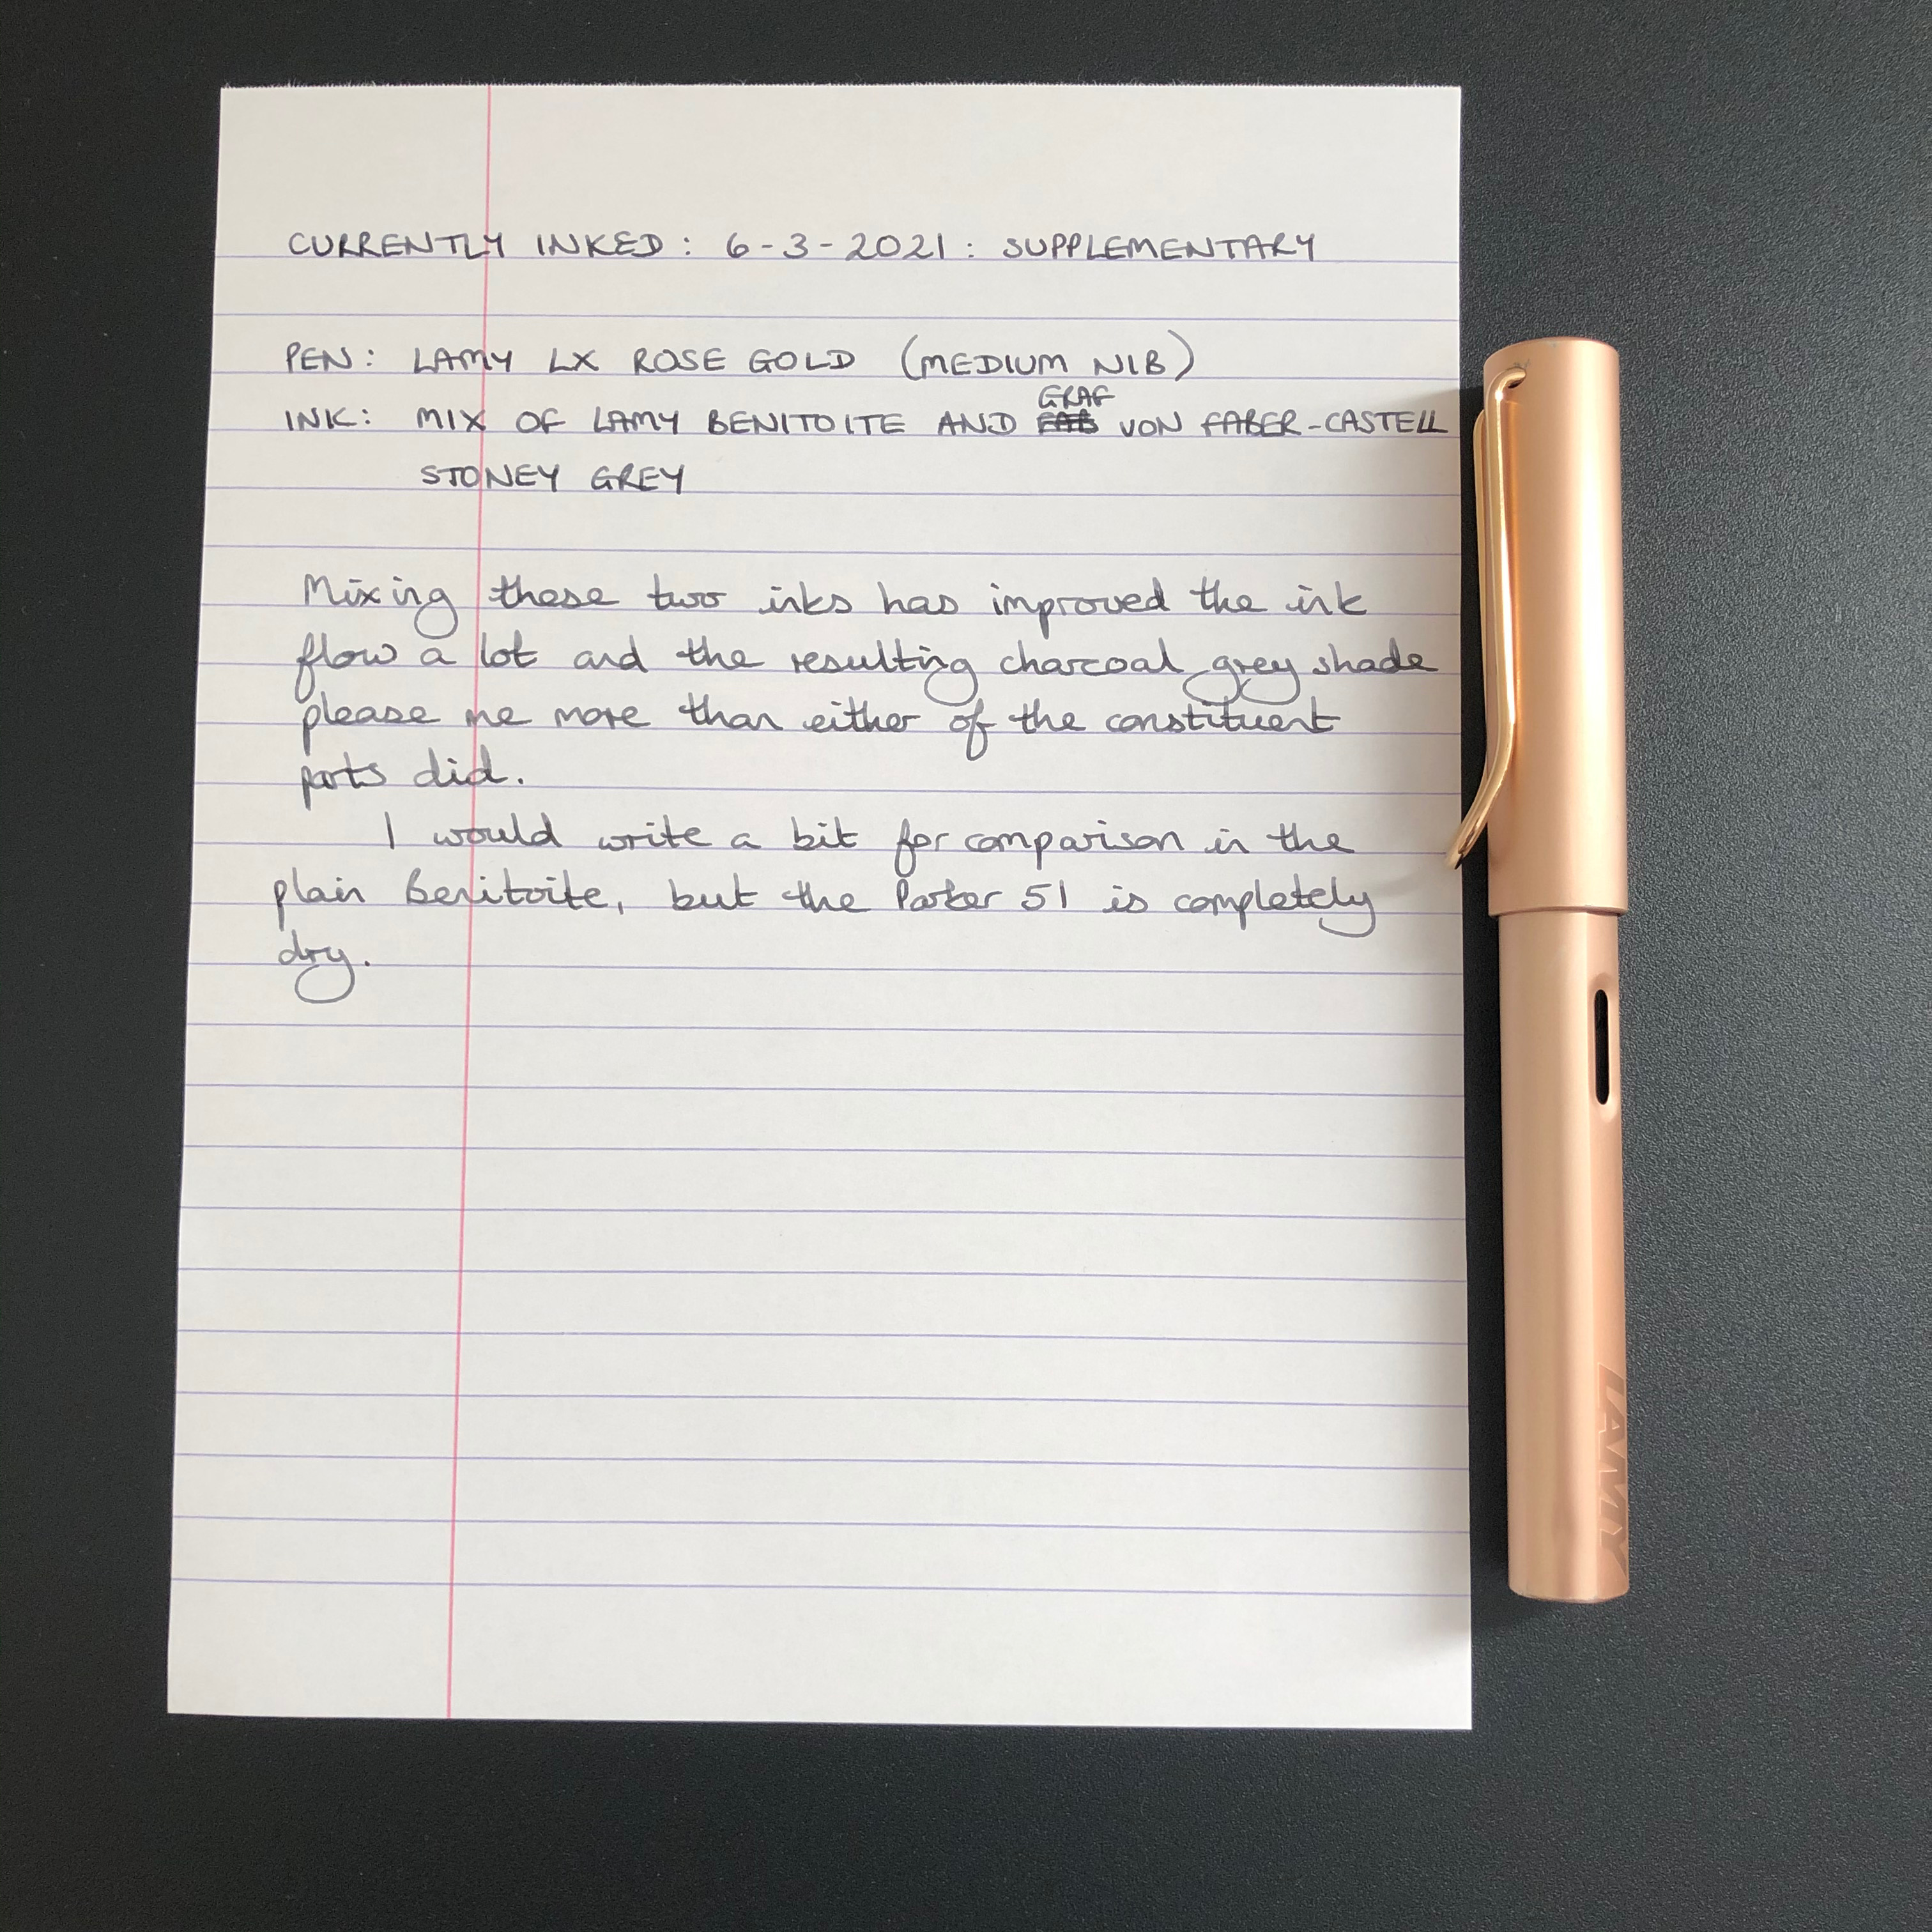 CURRENTLY INKED: 6-3-2021: SUPPLEMENTARY
PEN: LAMY LX ROSE GOLD (MEDIUM NIB)
GRAF
INK: MIX OF LAMY BENITOITE AND FAB VON FABER-CASTELL
STONEY GREY
Mixing these two inks has improved the ink
flow a lot and the resulting charcoal grey shade
please me more than either of the constituent
parts did.
I would write a bit for comparison in the
plain Benitoite, but the Parker 51 is completely
dry.
LAMY